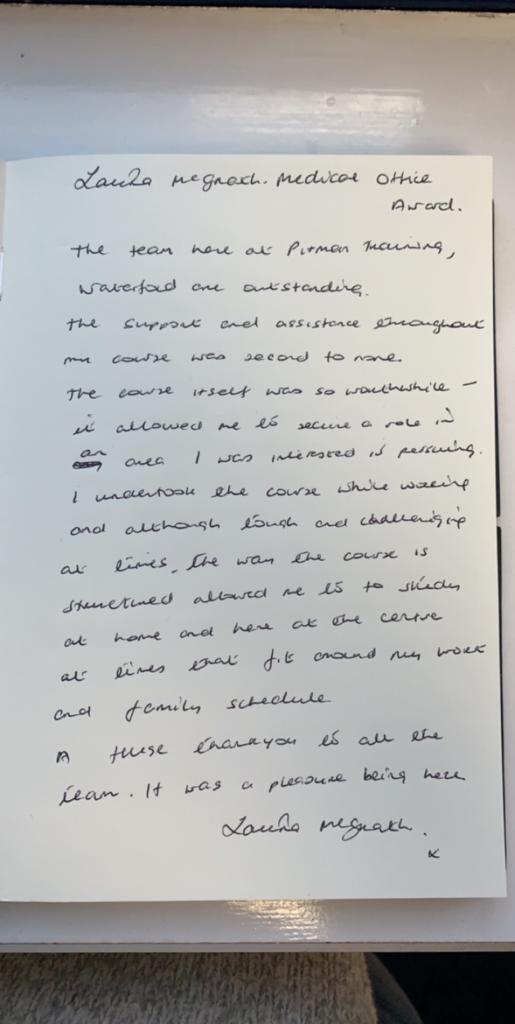 Laura McGrath. Medical Office
Award.
The team here at Pitman Training,
Waterford are outstanding.
The support and assistance throughout
my course was second to none.
The course itself was so worthwhile -
it allowed me to secure a role in
an area I was interested in persuing.
I undertook the course while working
and although tough and challenging
at times, the way the course is
structured allowed me to to study
at home and here at the centre
at times that fit around my work
and family schedule
A huge thankyou to all the
team. It was a pleasure being here
Laura McGrath.
x